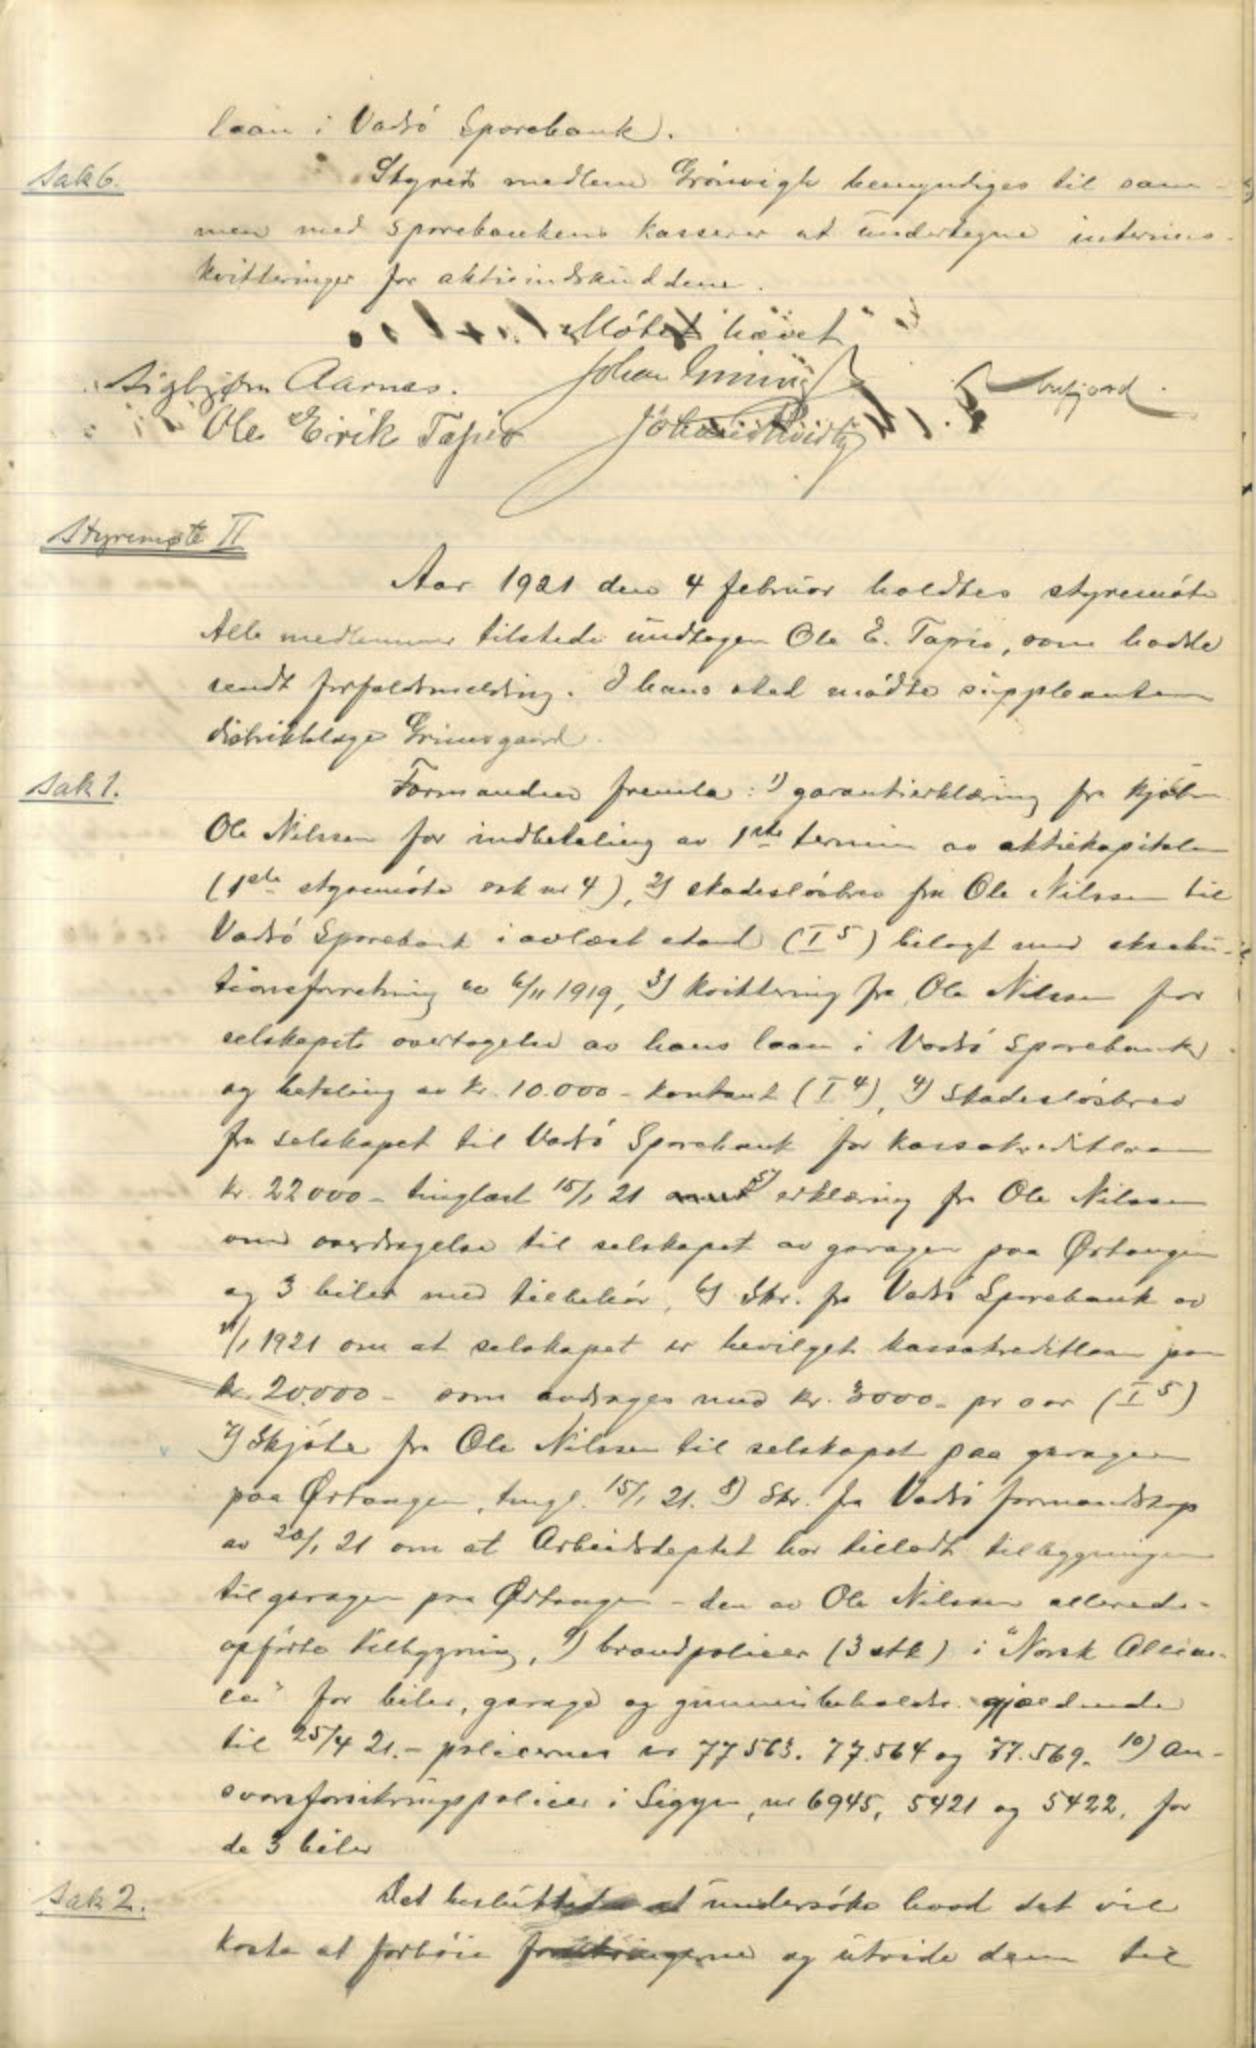 laan i Vadsö Sparebank.
Sak 6.
Styrets medlem Grönvigh bemyndiges til sam-
men med sparebankens kasserer at undertegne interims-
kvitteringer for aktieindskuddene.
Mötet hævet
Sigbjørn Aarnæs. Johan
Ole Erik Tapio
Styremøte II
Aar 1921 den 4 februar holdtes styremöte
Alle medlemmer tilstede undtagen Ole E. Tapio, som hadde
sendt forfaldsmelding. I hans sted mödte suppleanten
distriktslæge Grimsgaard.
Sak 1.
Formanden fremla: 1) garantierklæring fra kjöbm
Ole Nilssen for indbetaling av 1ste termin av aktiekapitalen
(1ste styremöte sak nr 4), 2) skadeslösbrev fra Ole Nilssen til
Vadsö Sparebank i avlæst stand (I 5) bilagt med eksecu-
tionsforretning av 6/11 1919, 3) kvittering fra Ole Nilssen for
selskapets overtagelse av hans laan i Vadsö Sparebank
og betaling av kr. 10.000 - kontant (I 4), 4) Skadeslösbrev
fra selskapet til Vadsö Sparebank for kassakreditlaan
kr. 22000 - tinglæst 15/1 21 5) erklæring fra Ole Nilssen
om overdragelse til selskapet av garagen paa Ørtangen
og 3 biler med tilbehör, 6) Skr. fra Vadsö Sparebank av
/1 1921 om at selskapet er bevilget kassakreditlaan paa
kr. 20.000 - som avdrages med kr. 3000 - pr aar (I 5)
7) Skjöte fra Ole Nilssen til selskapet paa garagen
paa Ørtangen, tingl. 15/1 21. 8) Skr. fra Vadsö formandskap
av 20/1 21 om at Arbeidsdeptet har tilladt tilbygningen
til garagen paa Ørtangen - den av Ole Nilssen allerede
opförte tilbygning, 9) brandpolicer (3 stk) i "Norsk Allian-
ce" for biler, garage og gummibeholdn. gjældende
til 25/4 21. - policernes nr 77563. 77.564 og 77.569. 10) An-
svarsforsikringspolicer i Sigyn, nr 6945, 5421 og 5422, for
de 3 biler
Sak 2.
Det besluttedes at undersöke hvad det vil
koste at forhöie forsikringerne og utvide dem til